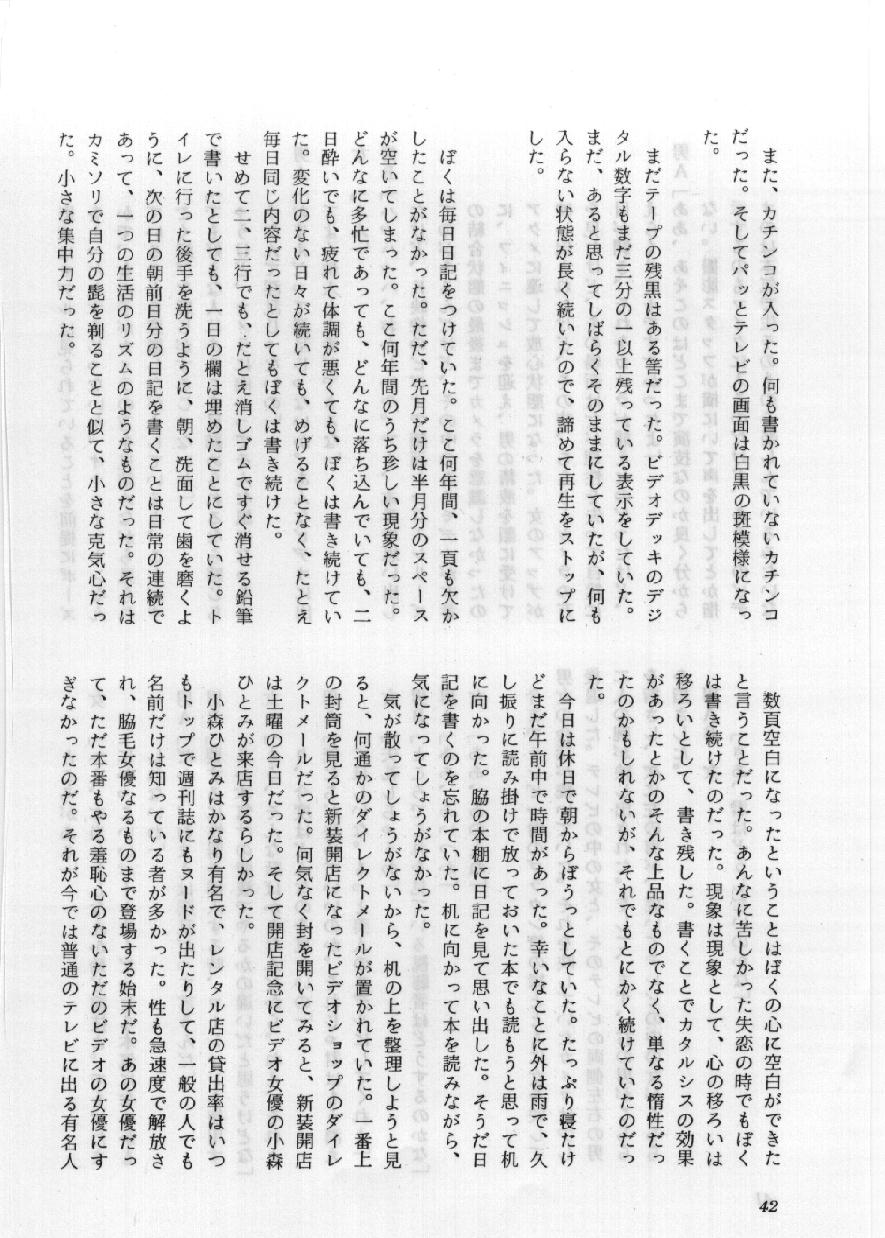 また、カチンコが入った。何も書かれていないカチンコ
だった。そしてパッとテレビの画面は白黒の斑模様になっ
た。
まだテープの残黒はある筈だった。ビデオデッキのデジ
タル数字もまだ三分の一以上残っている表示をしていた。
まだ、あると思ってしばらくそのままにしていたが、何も
入らない状態が長く続いたので、諦めて再生をストップに
した。
ぼくは毎日日記をつけていた。ここ何年間、一頁も欠か
したことがなかった。ただ、先月だけは半月分のスペース
が空いてしまった。ここ何年間のうち珍しい現象だった。
どんなに多忙であっても、どんなに落ち込んでいても、二
日酔いでも、疲れて体調が悪くても、ぼくは書き続けてい
た。変化のない日々が続いても、めげることなく、たとえ
毎日同じ内容だったとしてもぼくは書き続けた。
せめて二、三行でも、だとえ消しゴムですぐ消せる鉛筆
で書いたとしても、一日の欄は埋めたことにしていた。ト
イレに行った後手を洗うように、朝、洗面して歯を磨くよ
うに、次の日の朝前日分の日記を書くことは日常の連続で
あって、一つの生活のリズムのようなものだった。それは
カミソリで自分の髭を剃ることと似て、小さな克気心だっ
た。小さな集中力だった。
数頁空白になったということはぼくの心に空白ができた
と言うことだった。あんなに苦しかった失恋の時でもぼく
は書き続けたのだった。現象は現象として、心の移ろいは
移ろいとして、書き残した。書くことでカタルシスの効果
があったとかのそんな上品なものでなく、単なる惰性だっ
たのかもしれないが、それでもとにかく続けていたのだっ
た。
今日は休日で朝からぼうっとしていた。たっぷり寝たけ
どまだ午前中で時間があった。幸いなことに外は雨で、久
し振りに読み掛けで放っておいた本でも読もうと思って机
に向かった。脇の本棚に日記を見て思い出した。そうだ日
記を書くのを忘れていた。机に向かって本を読みながら、
気になってしょうがなかった。
気が散ってしょうがないから、机の上を整理しようと見
ると、何通かのダイレクトメールが置かれていた。一番上
の封筒を見ると新装開店になったビデオショップのダイレ
クトメールだった。何気なく封を開いてみると、新装開店
は土曜の今日だった。そして開店記念にビデオ女優の小森
ひとみが来店するらしかった。
小森ひとみはかなり有名で、レンタル店の貸出率はいつ
もトップで週刊誌にもヌードが出たりして、一般の人でも
名前だけは知っている者が多かった。性も急速度で解放さ
れ、脇毛女優なるものまで登場する始末だ。あの女優だっ
て、ただ本番もやる羞恥心のないただのビデオの女優にす
ぎなかったのだ。それが今では普通のテレビに出る有名人
42